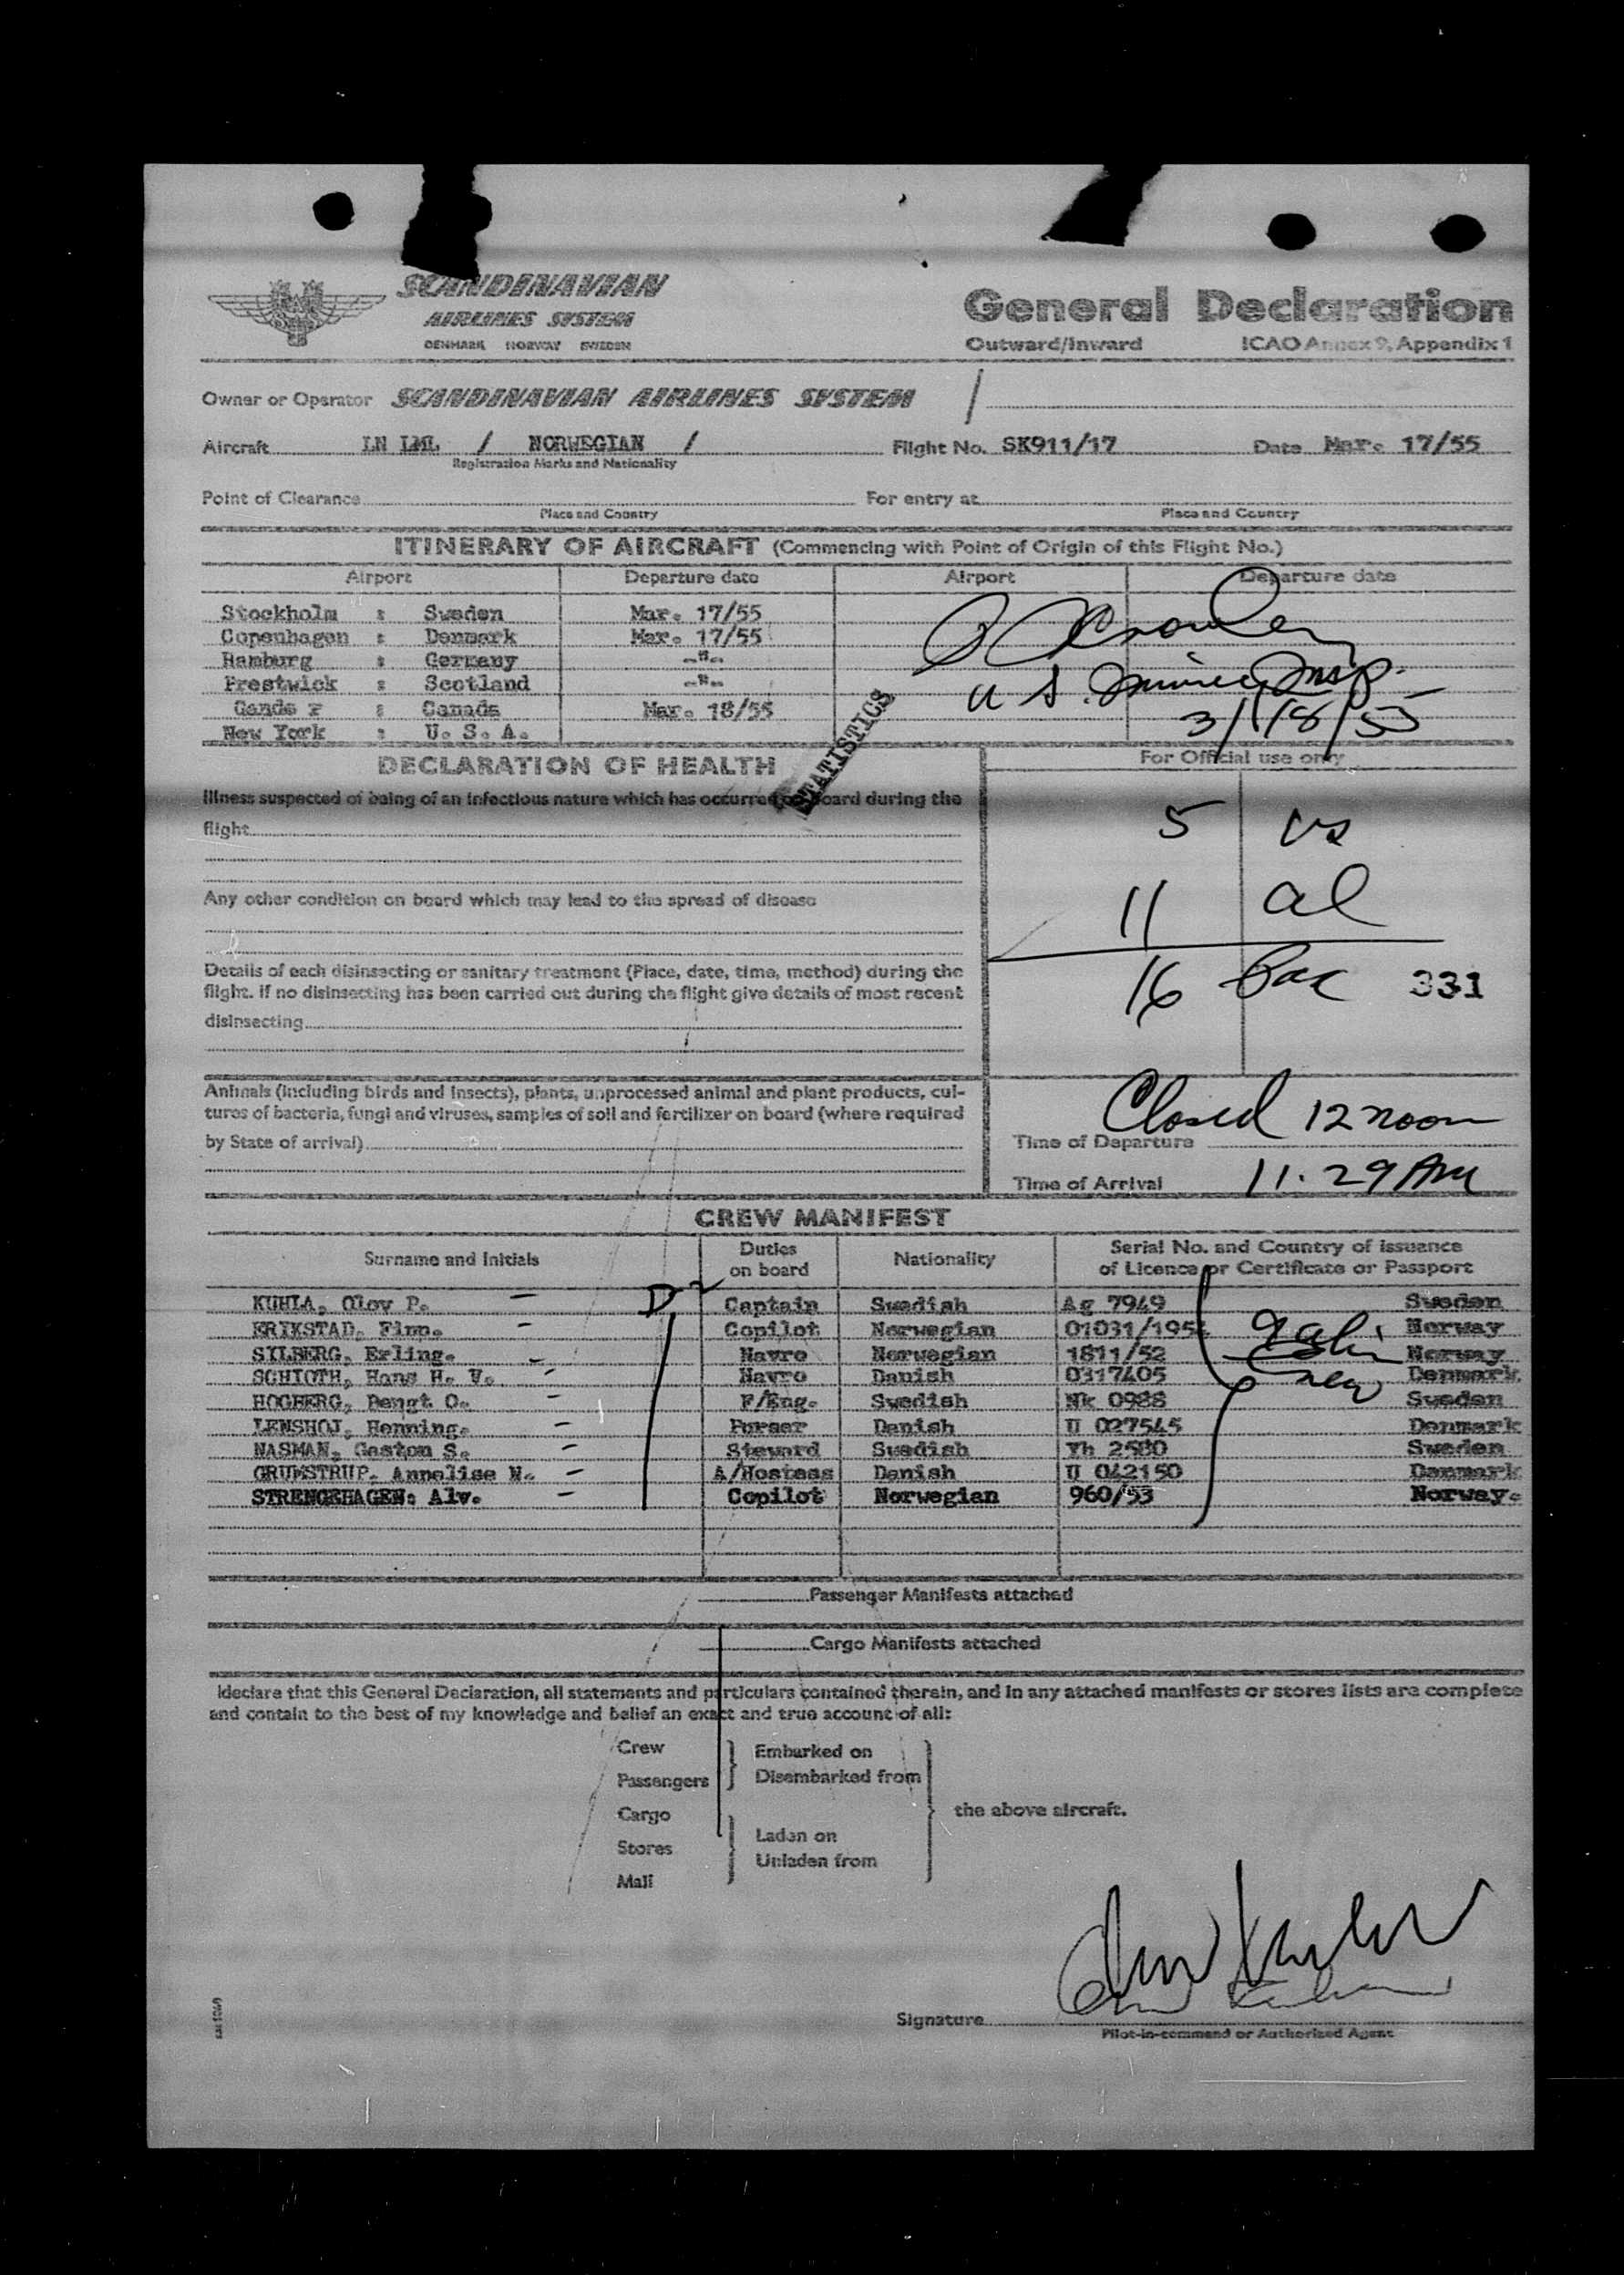 SCANDINAVIAN
AIRLINES SYSTEM
DENMARK NORWAY SWEDEN
General Declaration
Outward/Inward ICAO Annex 9, Appendix 1
Owner or Operator SCANDINAVIAN AIRLINES SYSTEM
Aircraft LN LML / NORWEGIAN / Flight No. SK911/17 Date Mar. 17/55
Registration Marks and Nationality
Point of Clearance For entry at
Place and Country Place and Country
ITINERARY OF AIRCRAFT (Commencing with Point of Origin of this Flight No.)
Airport Departure date Airport Departure date
Stockholm : Sweden Mar. 17/55
Copenhagen : Denmark Mar. 17/55
Hamburg : Germany -"-
Prestwick : Scotland -"-
Gande r : Canada Mar. 18/55
New York : U. S. A.
U S. Insp.
3/18/55
STATISTICS
DECLARATION OF HEALTH
For Official use only
Illness suspected of being of an infectious nature which has occurred on board during the
flight
5 us
Any other condition on board which may lead to the spread of disease
11 al
Details of each disinsecting or sanitary treatment (Place, date, time, method) during the
flight. If no disinsecting has been carried out during the flight give details of most recent
disinsecting
16 Pax 331
Animals (including birds and insects), plants, unprocessed animal and plant products, cul-
tures of bacteria, fungi and viruses, samples of soil and fertilizer on board (where required
by State of arrival)
Closed 12 noon
Time of Departure
Time of Arrival 11.29 AM
CREW MANIFEST
Surname and Initials Duties on board Nationality Serial No. and Country of issuance of Licence or Certificate or Passport
D-2
KUHLA, Olov P. - Captain Swedish Ag 7949 Sweden
ERIKSTAD, Finn. - Copilot Norwegian 01031/1954 Norway
SILBERG, Erling. - Navro Norwegian 1811/52 Norway
SCHIOTH, Hans H. V. - Navro Danish 0317405 Denmark
HOGBERG, Bengt O. - F/Eng. Swedish Nk 0988 Sweden
LEMSHOJ, Henning. - Purser Danish U 027545 Denmark
NASMAN, Gaston S. - Steward Swedish Yh 2580 Sweden
GRUMSTRUP, Annelise N. - A/Hostess Danish U 042150 Denmark
STRENGEHAGEN: Alv. - Copilot Norwegian 960/53 Norway.
Passenger Manifests attached
Cargo Manifests attached
I declare that this General Declaration, all statements and particulars contained therein, and in any attached manifests or stores lists are complete
and contain to the best of my knowledge and belief an exact and true account of all:
Crew
Passengers
Embarked on
Disembarked from
Cargo
Stores
Mail
Laden on
Unladen from
the above aircraft.
Signature
Pilot-in-command or Authorized Agent